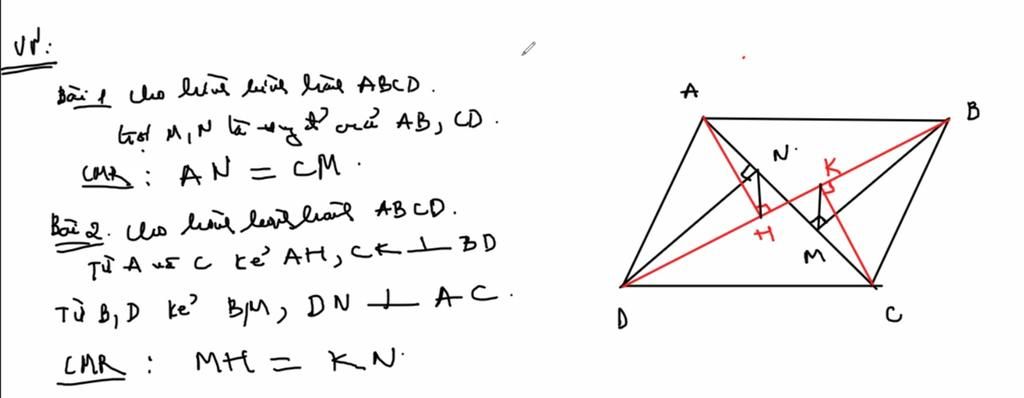 VN:
Bài 1 cho hình bình hành ABCD.
Gọi M, N là trung đ' của AB, CD.
CMR : AN = CM.
Bài 2. cho hình bình hành ABCD.
Từ A và C kẻ AH, CK ⊥ BD
Từ B, D kẻ BM, DN ⊥ AC.
CMR : MH = KN.
A
B
N
K
H
M
D
C